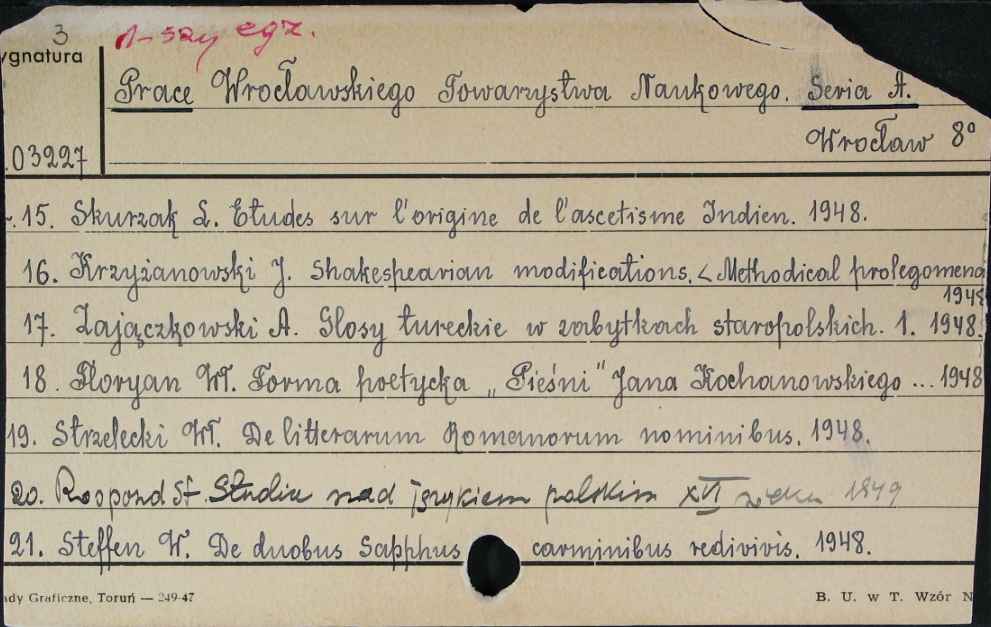 3 1-szy egz.
ygnatura
Prace Wrocławskiego Towarzystwa Naukowego. Seria A.
Wrocław 8°
.03227
15. Skurzak L. Etudes sur l'origine de l'ascetisme Indien. 1948.
16. Krzyżanowski J. Shakespearian modifications. < Methodical prolegomena
1948
17. Zajączkowski A. Glosy tureckie w zabytkach staropolskich. 1. 1948.
18. Floryan Wł. Forma poetycka „Pieśni" Jana Kochanowskiego ... 1948
19. Strzelecki Wł. De litterarum Romanorum nominibus. 1948.
20. Rospond St. Studia nad językiem polskim XVI wieku 1949
21. Steffen W. De duobus Sapphus carminibus redivivis. 1948.
ady Graficzne, Toruń — 249-47
B. U. w T. Wzór N